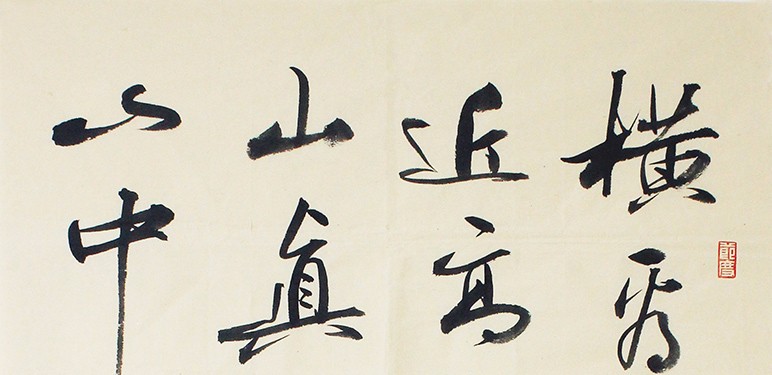 横看
近高
山真
山中